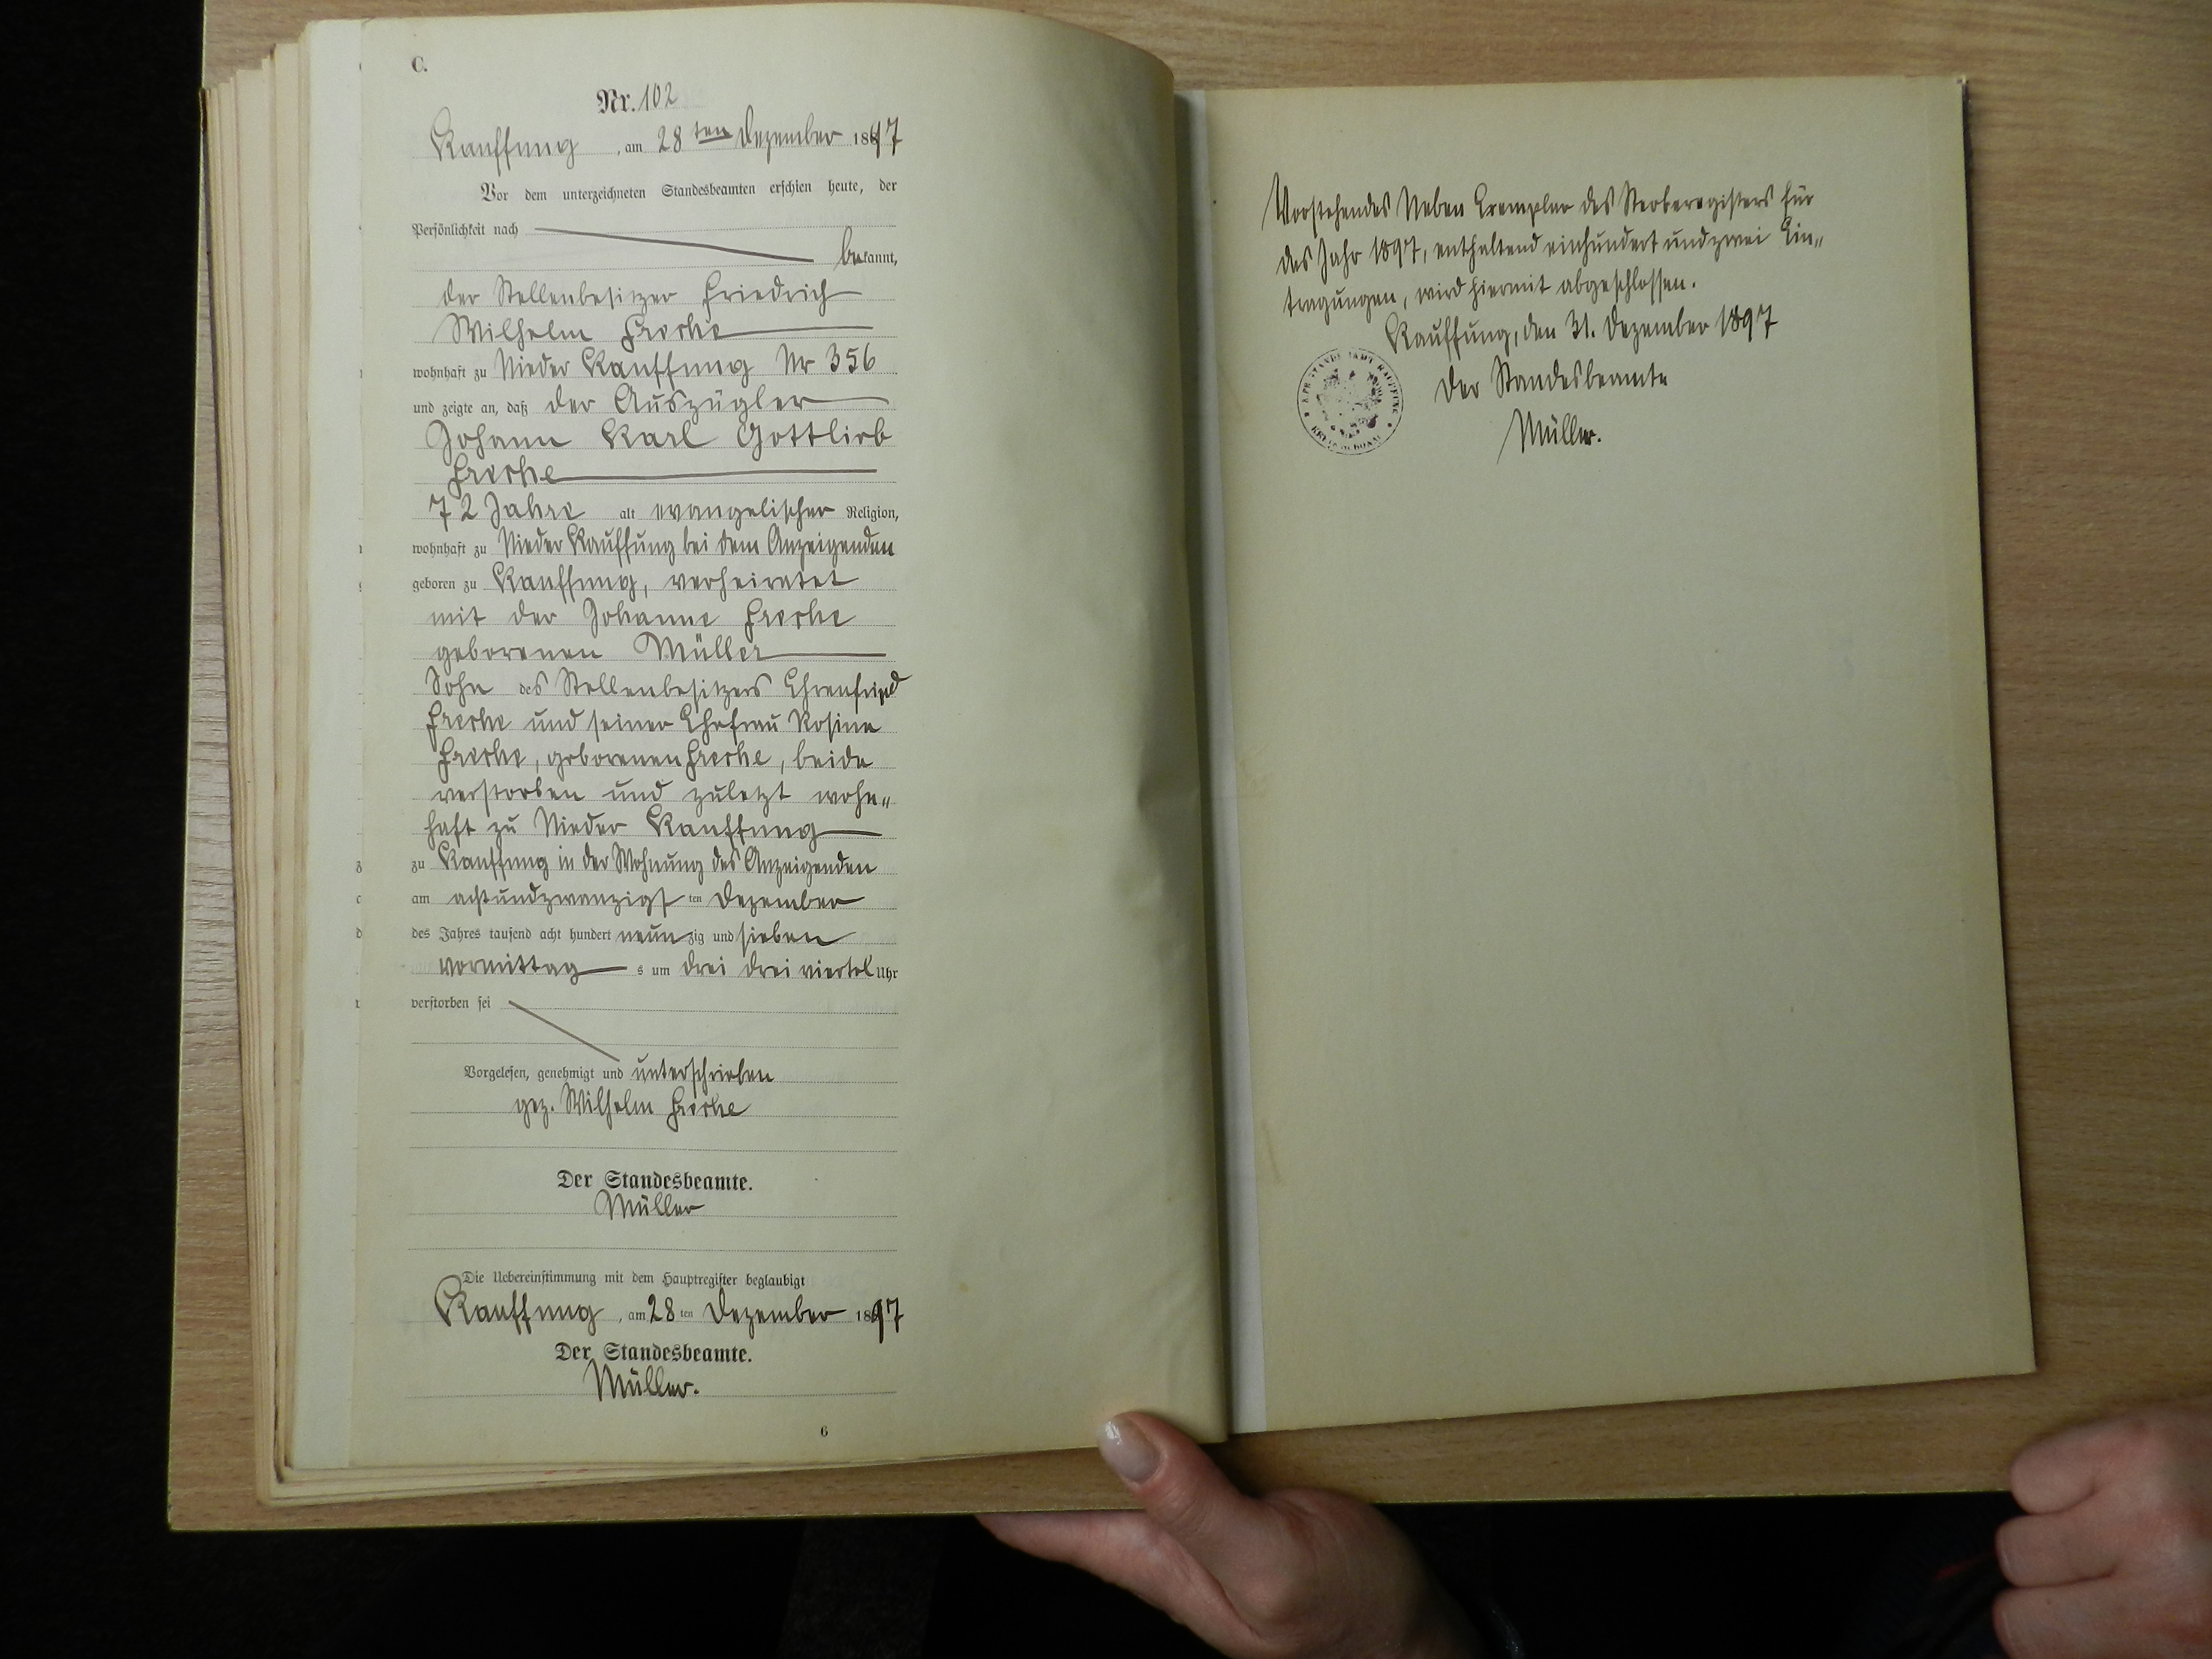 C.
Nr. 102
Kauffung, am 28ten Dezember 1897
Vor dem unterzeichneten Standesbeamten erschien heute, der
Persönlichkeit nach
bekannt,
der Stellenbesitzer Friedrich
Wilhelm Freche
wohnhaft zu Nieder Kauffung Nr 356
und zeigte an, daß der Auszügler
Johann Karl Gottlieb
Freche
72 Jahre alt evangelischer Religion,
wohnhaft zu Nieder Kauffung bei dem Anzeigenden
geboren zu Kauffung, verheiratet
mit der Johanne Freche
geborenen Müller
Sohn des Stellenbesitzers Ehrenfried
Freche und seiner Ehefrau Rosina
Freche, geborenen Freche, beide
verstorben und zuletzt wohn„
haft zu Nieder Kauffung
zu Kauffung in der Wohnung des Anzeigenden
am achtundzwanzigsten Dezember
des Jahres tausend acht hundert neunzig und sieben
vormittags um drei drei viertel Uhr
verstorben sei
Vorgelesen, genehmigt und unterschrieben
gez. Wilhelm Freche
Der Standesbeamte.
Müller
Die Uebereinstimmung mit dem Hauptregister beglaubigt
Kauffung, am 28ten Dezember 1897
Der Standesbeamte.
Müller.
6
Vorstehendes Neben Exemplar des Sterberegisters für
das Jahr 1897, enthaltend einhundert und zwei Ein„
tragungen, wird hiermit abgeschlossen.
Kauffung, den 31. Dezember 1897
Der Standesbeamte
Müller.